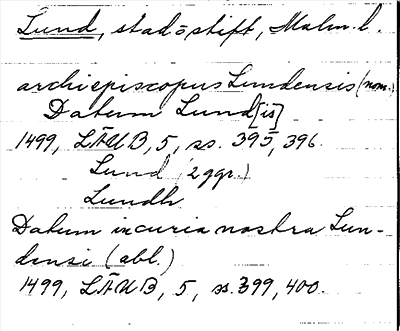 Lund, stad o stift, Malm. l.
archiepiscopus Lundensis (nom.)
Datum Lund[is]
1499, LÄUB, 5, ss. 395, 396.
Lund (2 ggr.)
Lundh
Datum in curia nostra Lun-
densi (abl.)
1499, LÄUB, 5, ss. 399, 400.